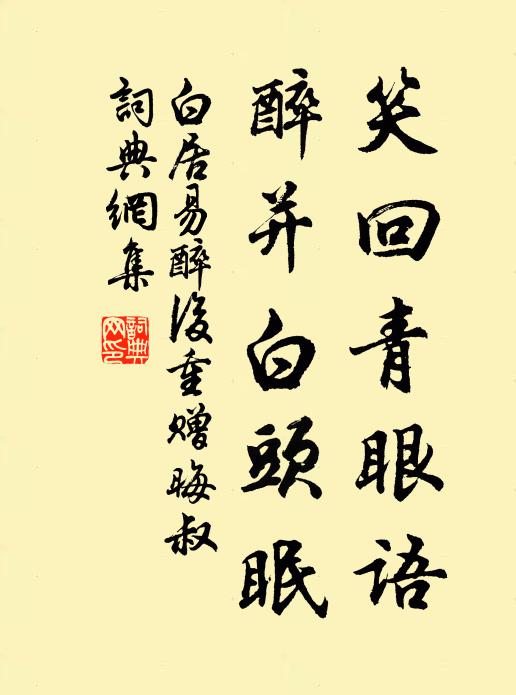 笑回青眼語
醉并白頭眠
白居易醉後重贈晦叔
詞典網集
詞典網印